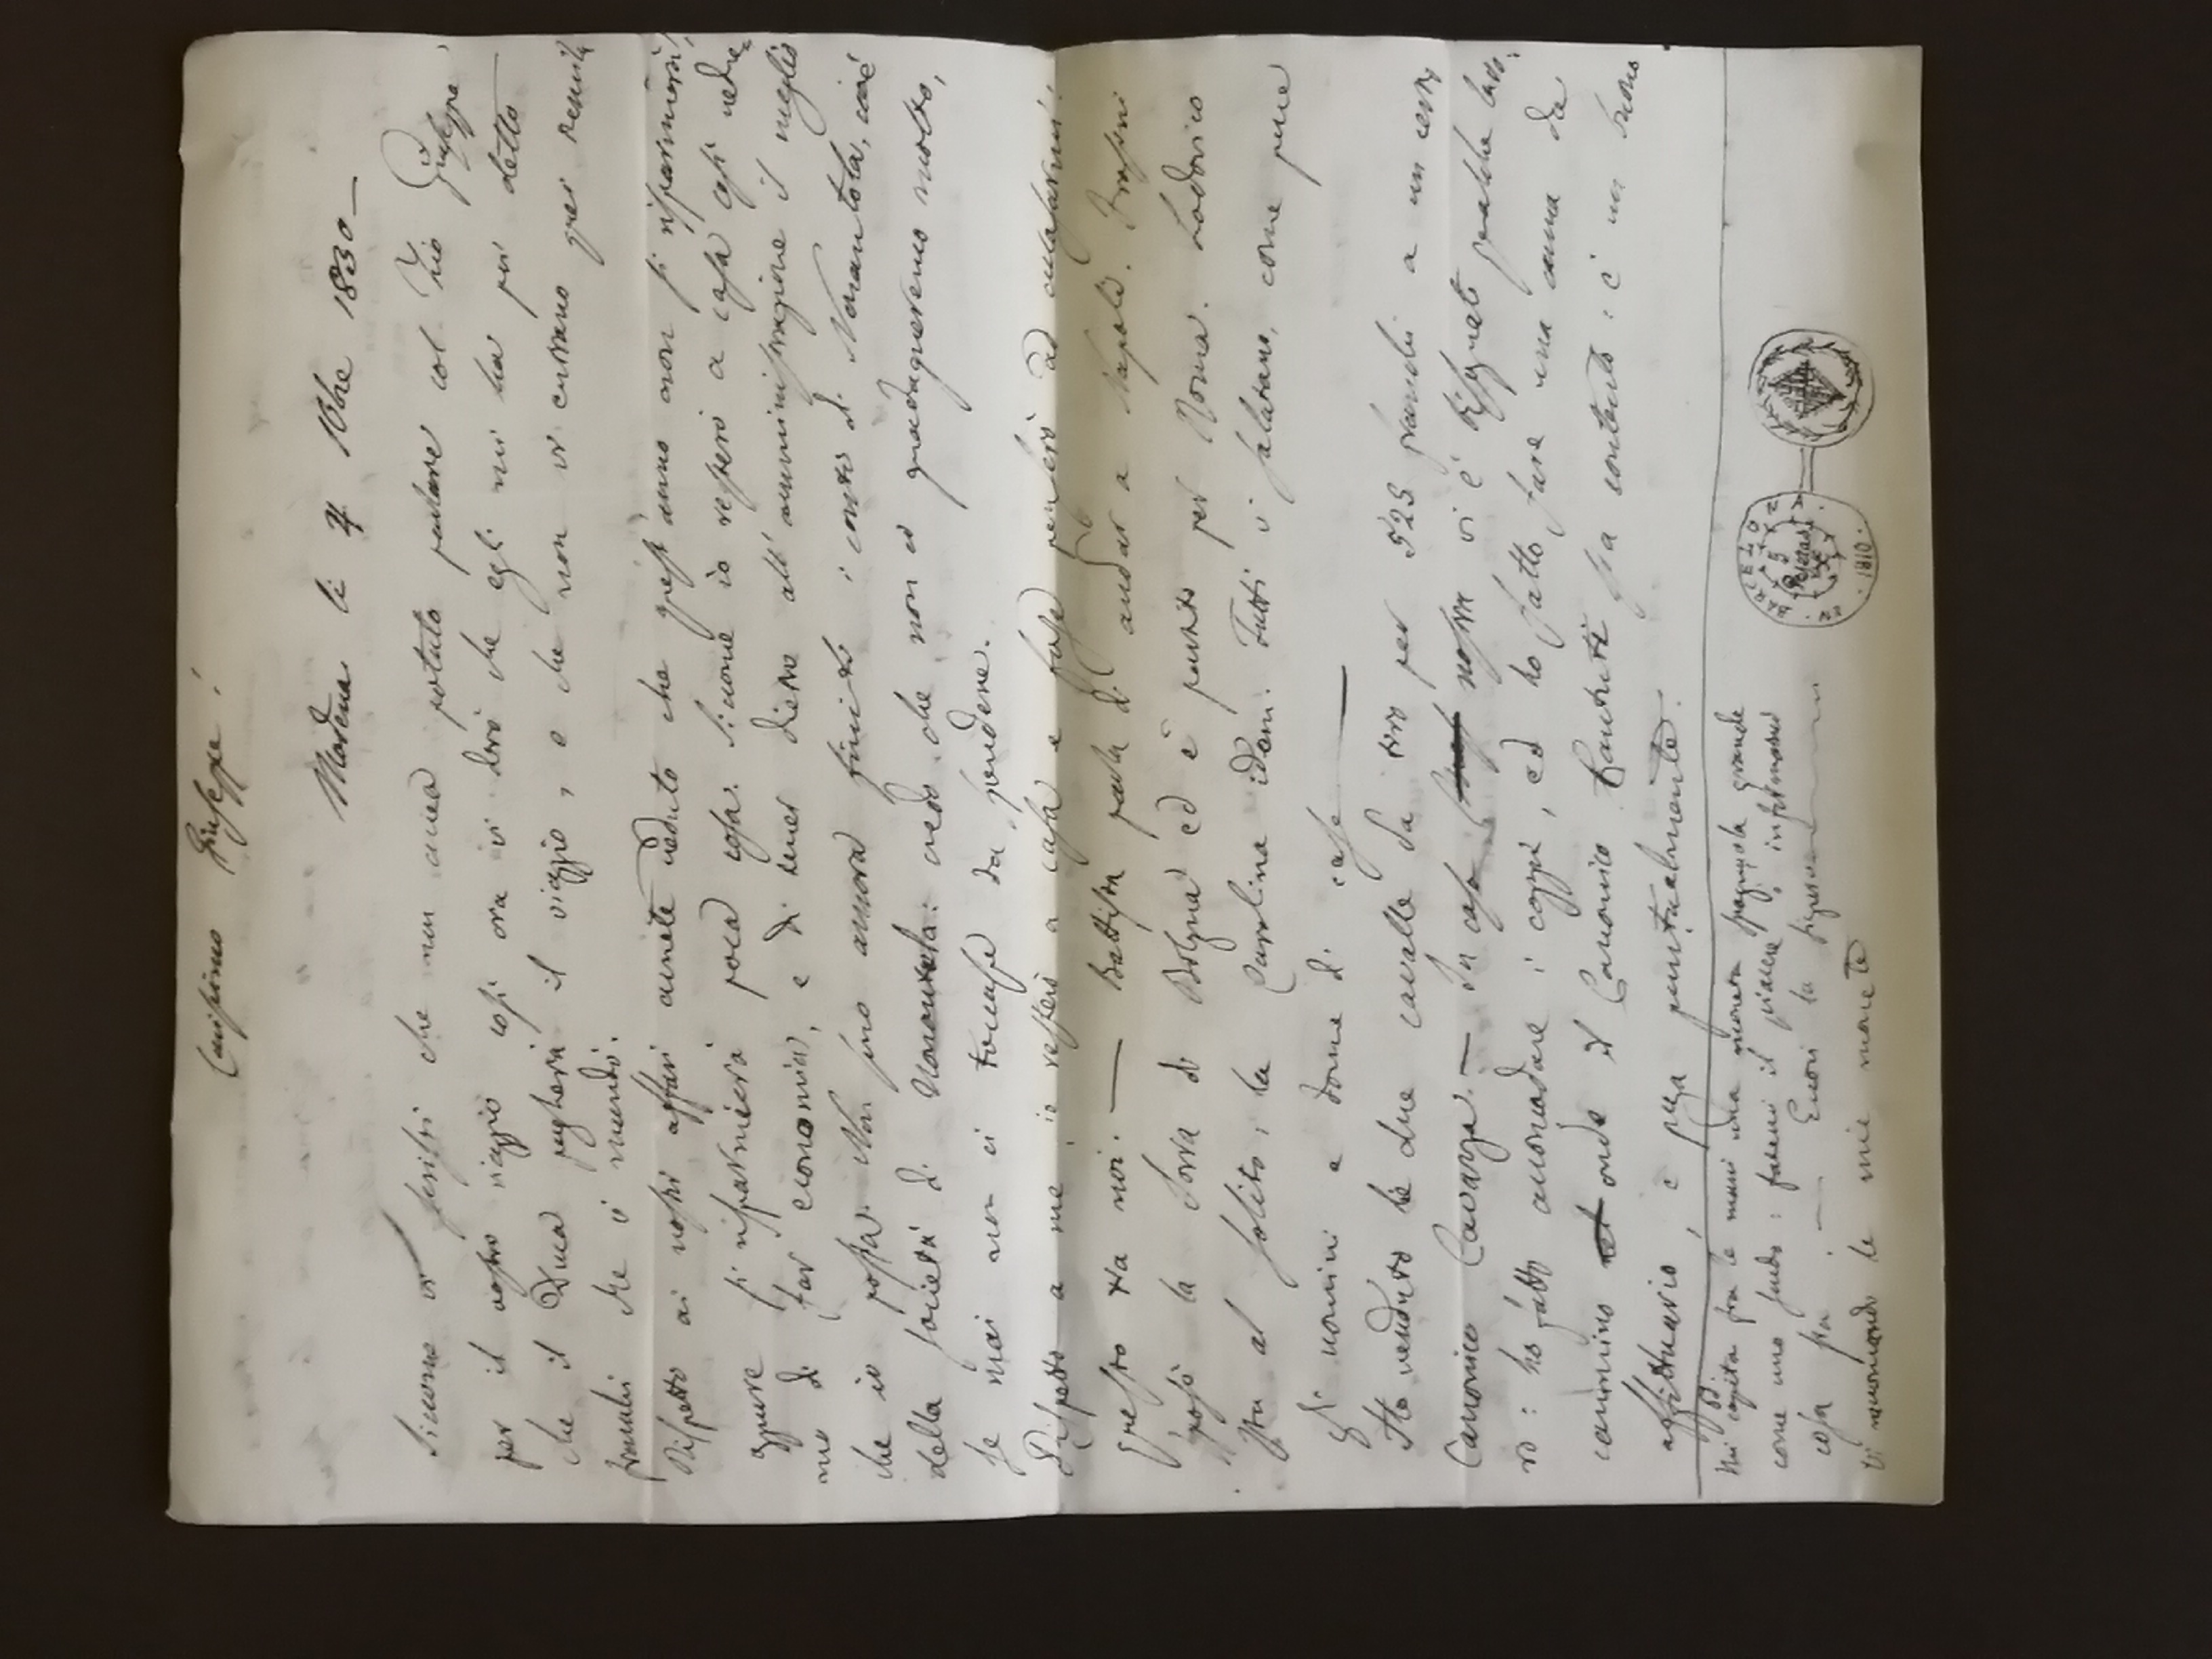 Carissimo Giuseppe!
Modena li 7 Xbre 1830 —
Siccome vi scrissi che non aveva potuto parlare col Zio Giuseppe,
per il vostro viaggio così ora vi dirò che egli mi ha poi detto
che il Duca pagherà il viaggio, e che non vi entrano quei
franchi che vi mandò.
Rispetto ai nostri affari avrete veduto che quest'anno non si risparmierà,
oppure si risparmierà poca cosa. Siccome io resterò a casa così vedre-
mo di far economia, e di tener dietro all'amministrazione il meglio
che io possa. Non sono ancora finiti i conti di Nonantola, cioè
della società di Nonantola: credo che non ci guadagneremo molto,
se mai non ci toccasse da perdere.
Rispetto a me, io resterò a casa e forse penserò ad
questo tra noi. — Battista parla di andar a Napoli.
sposò la Sorra di Bologna ed è partito per Roma. Lodovico
sta al solito; la Carolina idem. Tutti vi salutano, come pure
gli uomini e donne di casa —
Ho venduto le due cavalle da tiro per 525 franchi a un certo
Canonico Cavazza. — In casa nostra vi è bisognato qualche lavo-
ro: ho fatto accomodare i coppi, ed ho fatto fare una canna da
cammino onde il Canonico sia contento: è un buon
affittuario, e paga puntualmente.
PS.
Mi capita fra le mani una moneta spagnola grande
come uno scudo: fatemi il piacere d'informarvi
cosa sia. — Eccovi la figura
Vi raccomando le mie monete
BARCELONA
5
Pesetas
1810